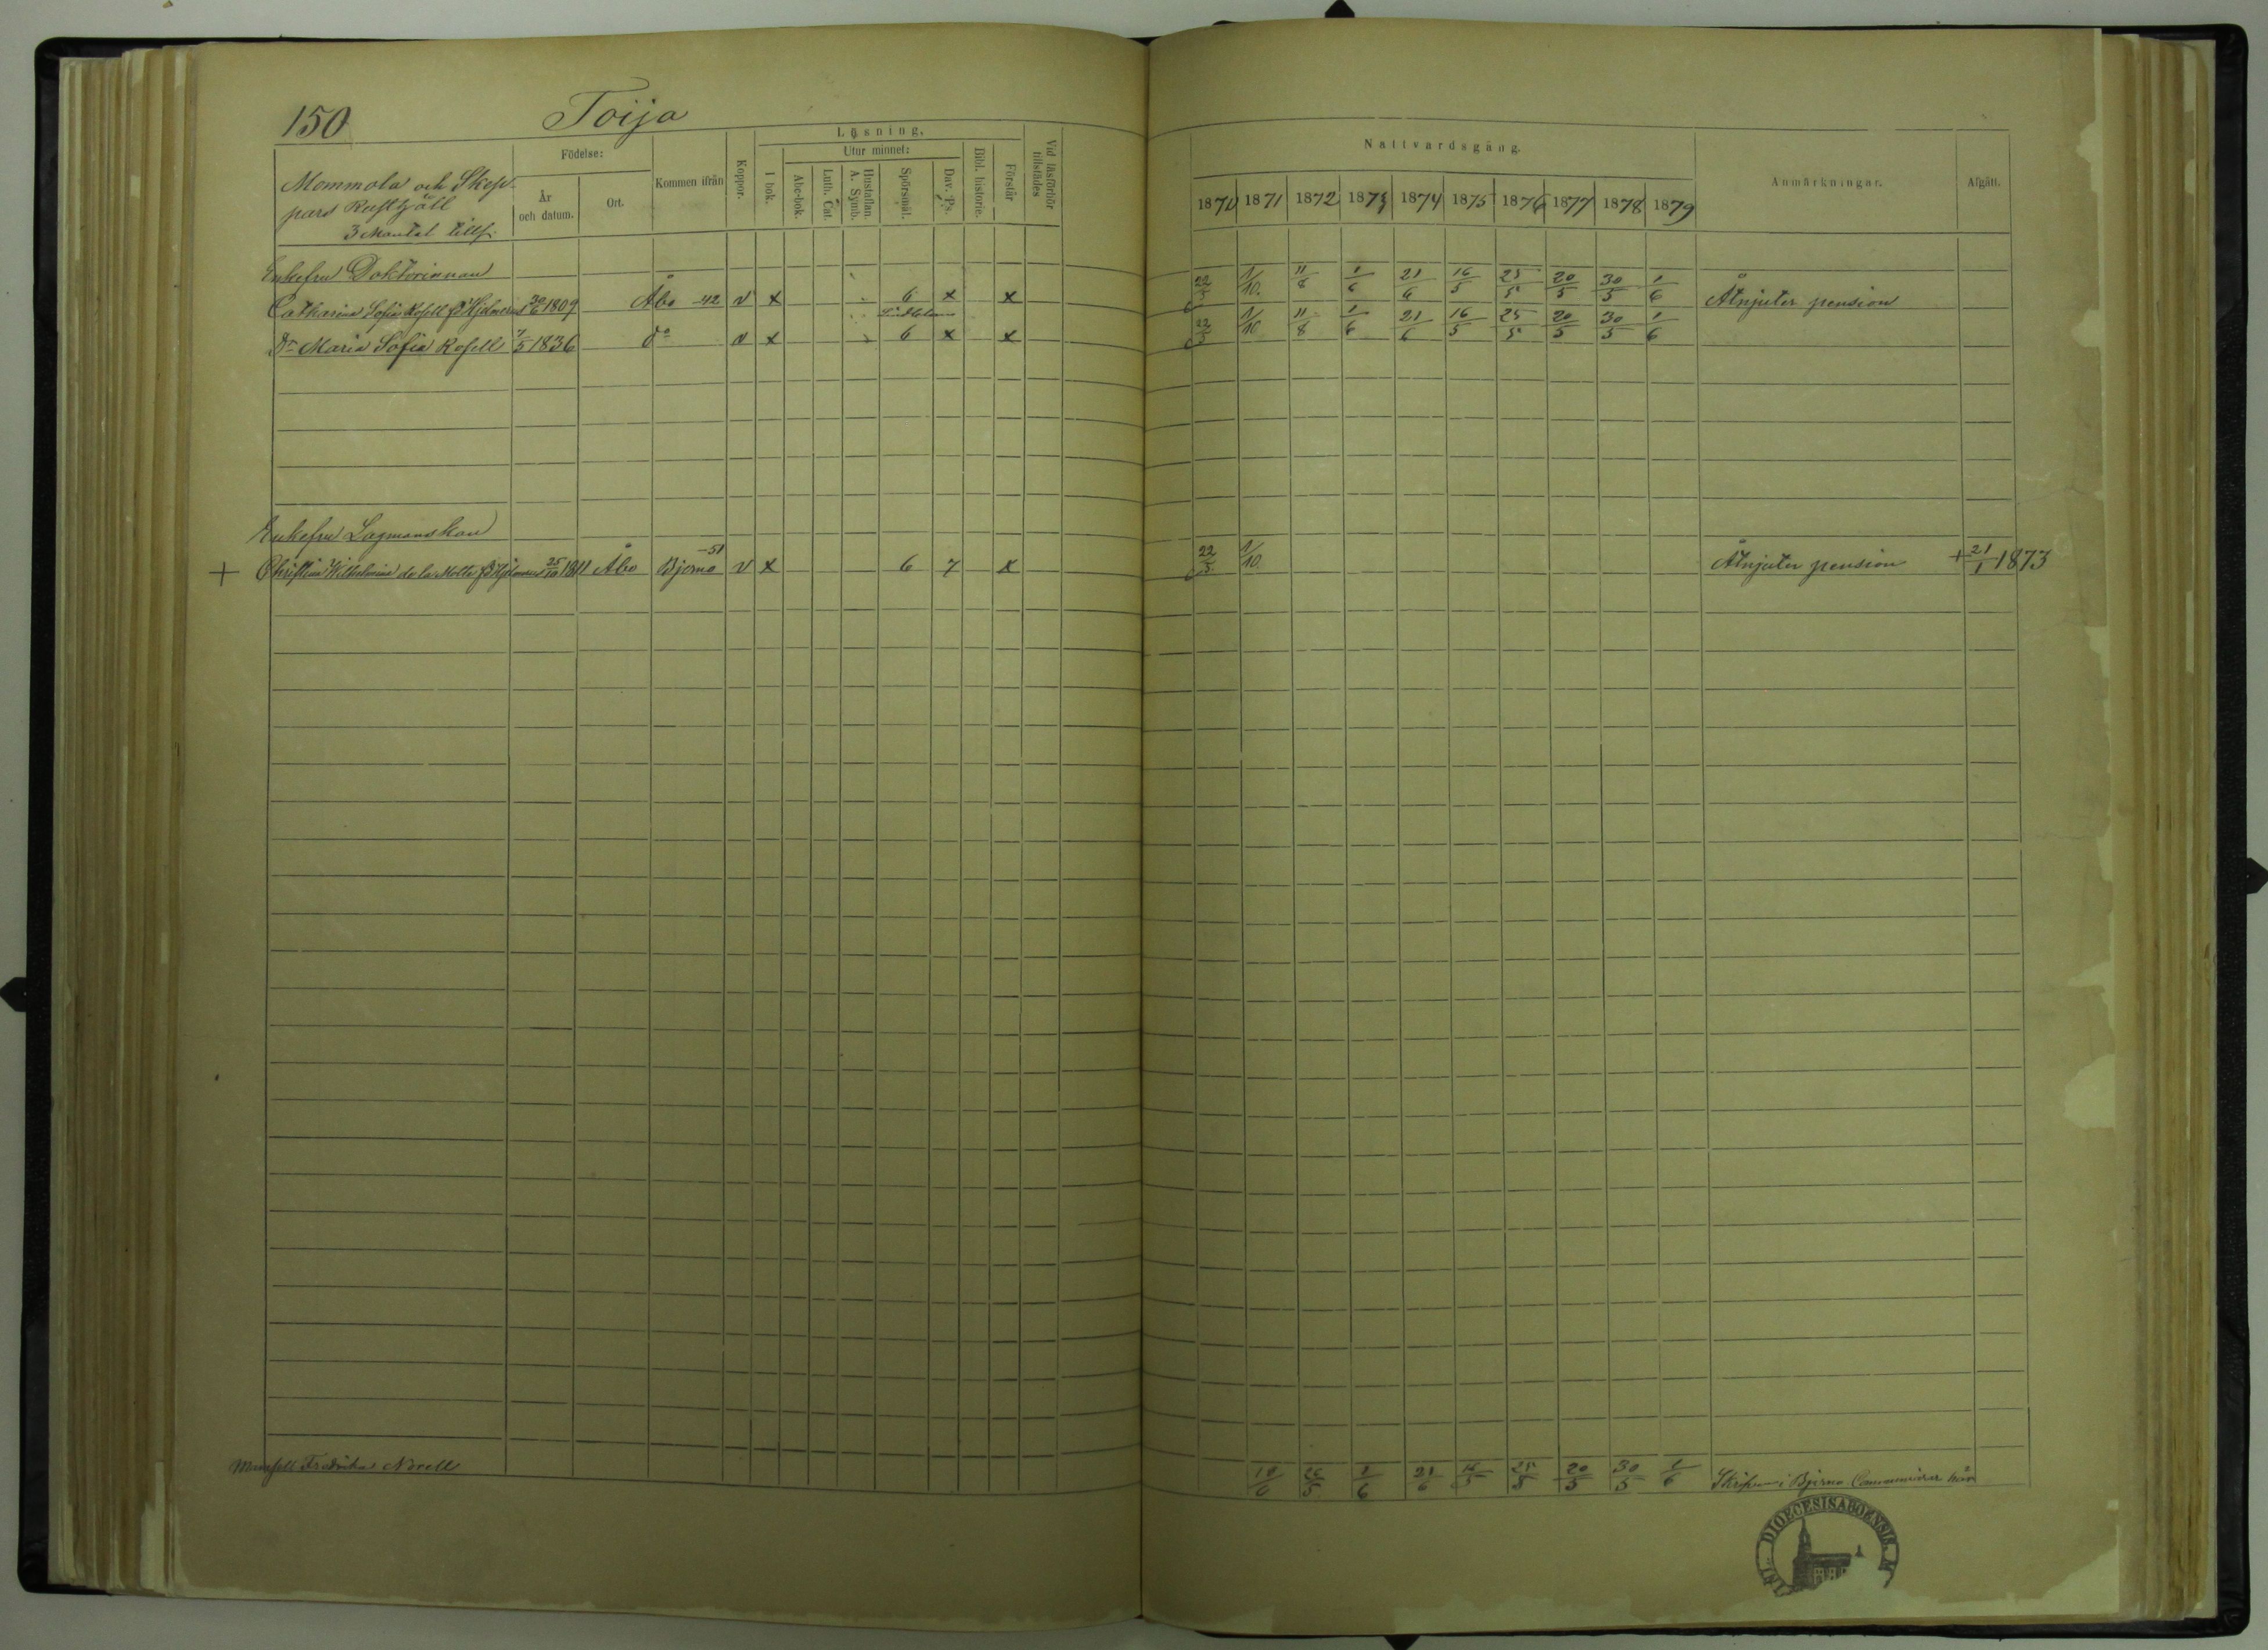 150 Toija
Mommola och Skop-
pars Rusthåll
3 Mantal tills:
Födelse:
År och datum.
Ort.
Kommen ifrån
Koppor.
Läsning.
I bok.
Utur minnet:
Abc-bok.
Luth. Cat.
Hustaflan. A. Symb.
Spörsmål.
Dav. Ps.
Bibl. historie.
Förstår
Vid läsförhör tillstädes
Nattvardsgång.
1870 1871 1872 1873 1874 1875 1876 1877 1878 1879
Anmärkningar.
Afgått.
Enkefru Doktorinnan
Catharina Sofia Rosell 30/6 1809 Åbo -42 v x 6 x x 22/5 1/10 11/8 1/6 21/6 16/5 25/5 20/5 30/5 1/6 Åtnjuter pension
Dr Maria Sofia Rosell 7/5 1836 do v x 6 x x 22/5 1/10 11/8 1/6 21/6 16/5 25/5 20/5 30/5 1/6
Enkefru Lagmanskan
+ Christina Wilhelmina de la Motte 25/10 1811 Åbo Bjerno -51 v x 6 7 x 22/5 1/10 Åtnjuter pension + 21/1 1873
Mamsell Fredrika Norell 1/6 21/6 16/5 25/5 20/5 30/5 1/6 i Bjerno Communicerar här
DIOECESIS ABOENSIS